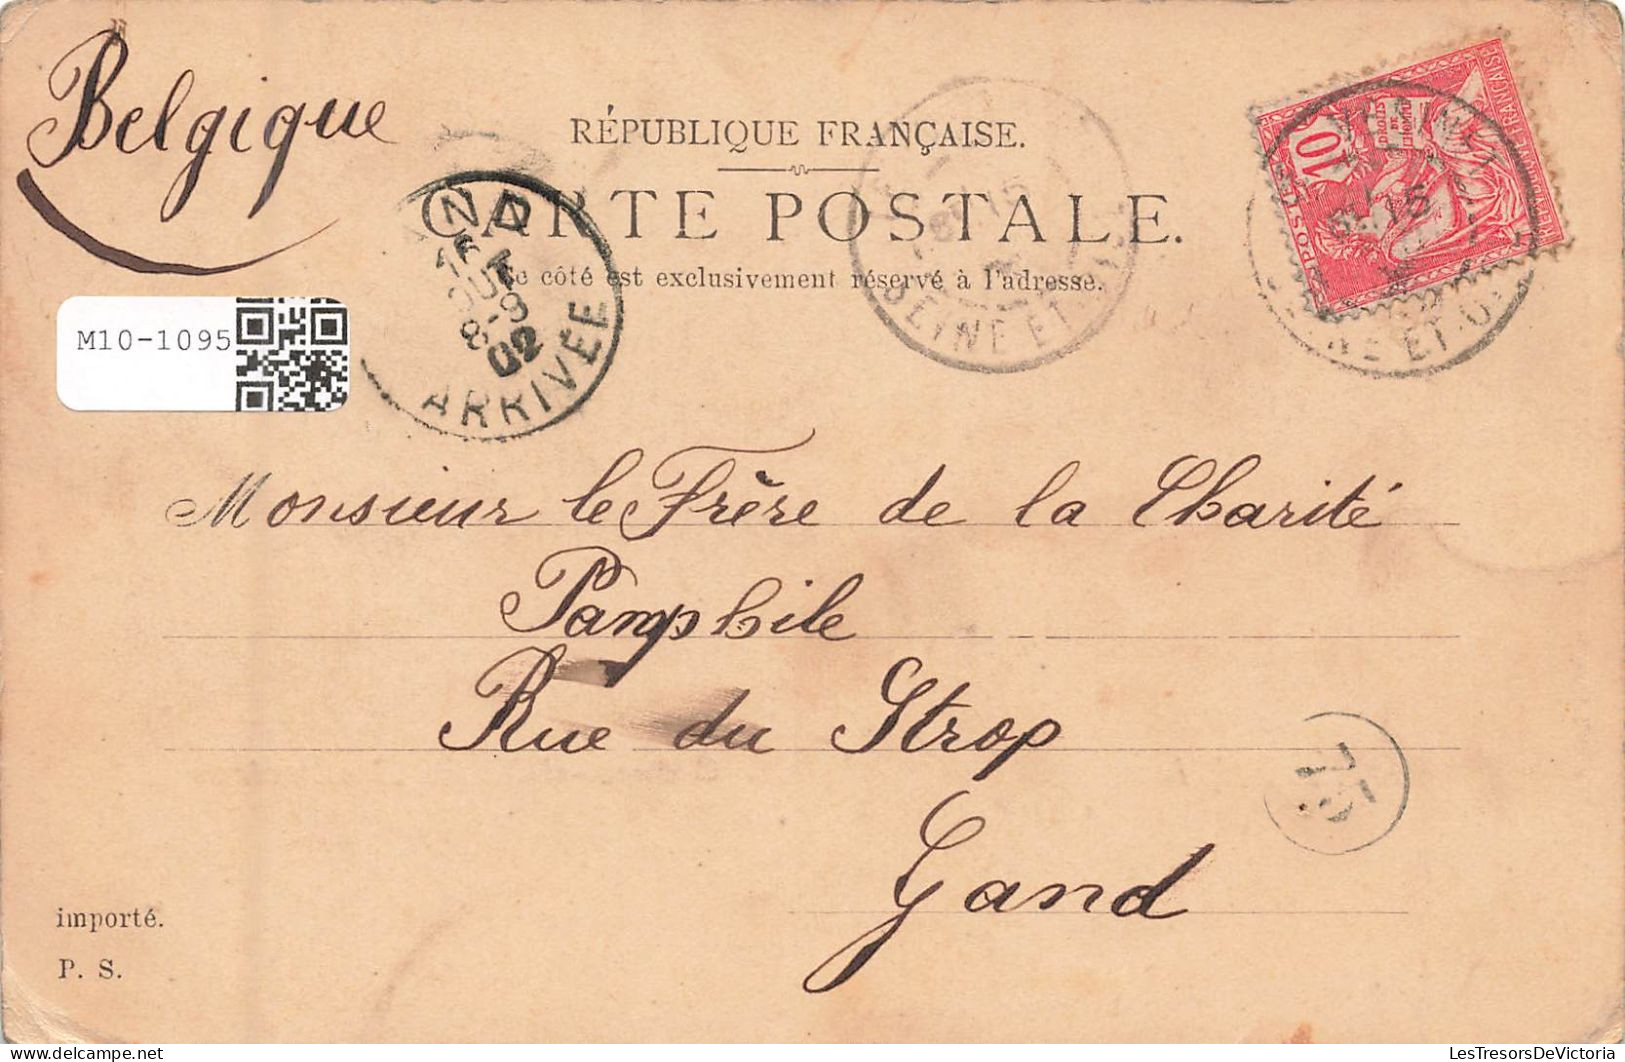 Belgique
RÉPUBLIQUE FRANÇAISE.
CARTE POSTALE.
Ce côté est exclusivement réservé à l'adresse.
10
DROITS DE L'HOMME
POSTES
RÉPUBLIQUE FRANÇAISE
15
SEINE ET
NE ET O
ND
16
OUT
8-9
02
ARRIVÉE
M10-1095
Monsieur le Frère de la Charité
Pamphile
Rue du Strop
Gand
75
importé.
P. S.
LesTresorsDeVictoria